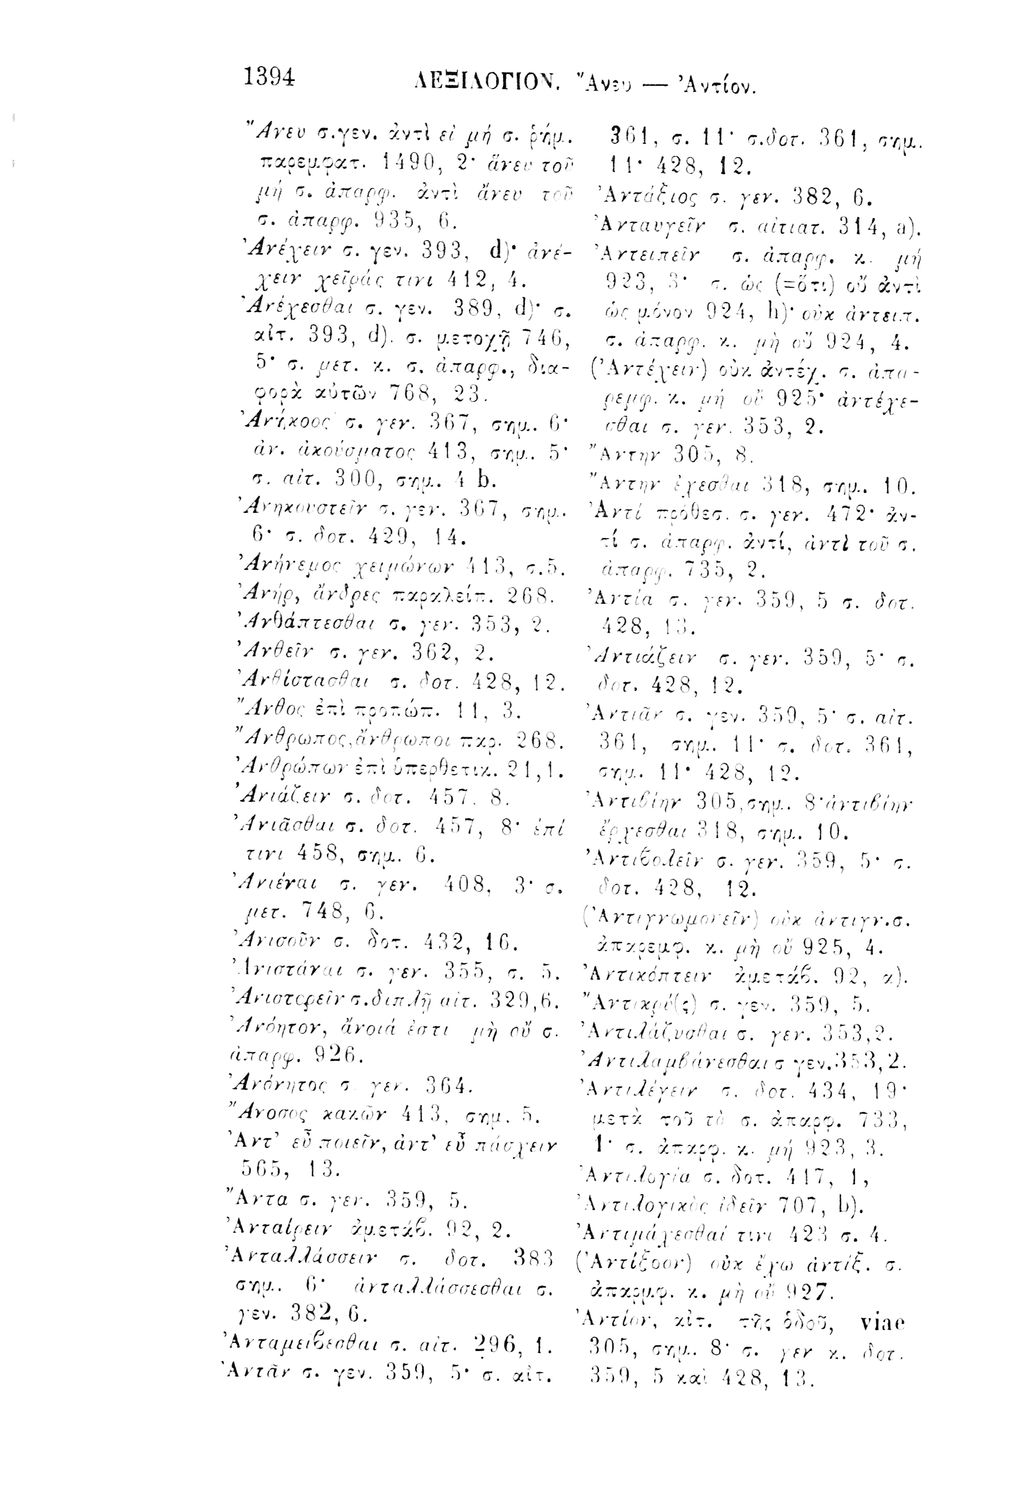 1394 ΛΕΞΙΛΟΓΙΟΝ. Ἄνευ — Ἀντίον.
Ἄνευ σ.γεν. ἀντὶ εἰ μή σ. ῥήμ.
παρεμφατ. 1490, 2· ἄνευ τοῦ
μή σ. ἀπαρφ. ἀντὶ ἄνευ τοῦ
σ. ἀπαρφ. 935, 6.
Ἀνέχειν σ. γεν. 393, d)· ἀνέ-
χειν χεῖράς τινι 412, 4.
Ἀνέχεσθαι σ. γεν. 389, d)· σ.
αἰτ. 393, d). σ. μετοχῇ 746,
5· σ. μετ. κ. σ. ἀπαρφ., δια-
φορὰ αὐτῶν 768, 23.
Ἀνήκοος σ. γεν. 367, σημ. 6·
ἀν. ἀκούσματος 413, σημ. 5·
σ. αἰτ. 300, σημ. 4 b.
Ἀνηκουστεῖν σ. γεν. 367, σημ.
6· σ. δοτ. 429, 14.
Ἀνήνεμος χειμώνων 413, σ.5.
Ἀνήρ, ἄνδρες παραλείπ. 268.
Ἀνθάπτεσθαι σ. γεν. 353, 2.
Ἀνθεῖν σ. γεν. 362, 2.
Ἀνθίστασθαι σ. δοτ. 428, 12.
Ἄνθος ἐπὶ προπώπ. 11, 3.
Ἄνθρωπος,ἄνθρωποι παρ. 268.
Ἀνθρώπων ἐπὶ ὑπερθετικ. 21,1.
Ἀνιάζειν σ. δοτ. 457, 8.
Ἀνιᾶσθαι σ. δοτ. 457, 8· ἐπί
τινι 458, σημ. 6.
Ἀνιέναι σ. γεν. 408, 3· σ.
μετ. 748, 6.
Ἀνισοῦν σ. δοτ. 432, 16.
Ἀνιστάναι σ. γεν. 355, σ. 5.
Ἀνιστορεῖν σ.διπλῇ αἰτ. 329,6.
Ἀνόητον, ἄνοιά ἐστι μὴ οὔ σ.
ἀπαρφ. 926.
Ἀνόνητος σ γεν. 364.
Ἄνοσος κακῶν 413, σημ. 5.
Ἀντ' εὖ ποιεῖν, ἀντ' εὖ πάσχειν
565, 13.
Ἄντα σ. γεν. 359, 5.
Ἀνταίρειν ἀμετάβ. 92, 2.
Ἀνταλλάσσειν σ. δοτ. 383
σημ. 6· ἀνταλλάσσεσθαι σ.
γεν. 382, 6.
Ἀνταμείβεσθαι σ. αἰτ. 296, 1.
Ἀντᾶν σ. γεν. 359, 5· σ. αἰτ.
361, σ. 11· σ.δοτ. 361, σημ.
11· 428, 12.
Ἀντάξιος σ. γεν. 382, 6.
Ἀνταυγεῖν σ. αἰτιατ. 314, a).
Ἀντειπεῖν σ. ἀπαρφ. κ. μή
923, 3· σ. ὡς (=ὅτι) οὔ ἀντὶ
ὡς μόνον 924, h)· οὐκ ἀντειπ.
σ. ἀπαρφ. κ. μὴ οὔ 924, 4.
(Ἀντέχειν) οὐκ ἀντέχ. σ. ἀπα-
ρεμφ. κ. μή οὔ 925· ἀντέχε-
σθαι σ. γεν. 353, 2.
Ἄντην 305, 8.
Ἄντην ἔρχεσθαι 318, σημ. 10.
Ἀντί πρόθεσ. σ. γεν. 472· ἀν-
τί σ. ἀπαρφ. ἀντί, ἀντὶ τοῦ σ.
ἀπαρφ. 735, 2.
Ἀντία σ. γεν. 359, 5 σ. δοτ.
428, 13.
Ἀντιάζειν σ. γεν. 359, 5· σ.
δοτ. 428, 12.
Ἀντιᾶν σ. γεν. 359, 5· σ. αἰτ.
361, σημ. 11· σ. δοτ. 361,
σημ. 11· 428, 12.
Ἀντιβίην 305,σημ. 8·ἀντιβίην
ἔρχεσθαι 318, σημ. 10.
Ἀντιβολεῖν σ. γεν. 359, 5· σ.
δοτ. 428, 12.
(Ἀντιγνωμονεῖν) οὐκ ἀντιγν.σ.
ἀπαρεμφ. κ. μὴ οὔ 925, 4.
Ἀντικόπτειν ἀμετάβ. 92, α).
Ἄντικρύ(ς) σ. γεν. 359, 5.
Ἀντιλάζυσθαι σ. γεν. 353,2.
Ἀντιλαμβάνεσθαι σ γεν.353,2.
Ἀντιλέγειν σ. δοτ. 434, 19·
μετὰ τοῦ τὸ σ. ἀπαρφ. 733,
1· σ. ἀπαρφ. κ. μή 923, 3.
Ἀντιλογία σ. δοτ. 417, 1,
Ἀντιλογικὸς ἰδεῖν 707, b).
Ἀντιμάχεσθαί τινι 423 σ. 4.
(Ἀντίξοον) οὐκ ἔχω ἀντίξ. σ.
ἀπαρμφ. κ. μὴ οὔ 927.
Ἀντίον, αἰτ. τῆς ὁδοῦ, viae
305, σημ. 8· σ. γεν κ. δοτ.
359, 5 καὶ 428, 13.